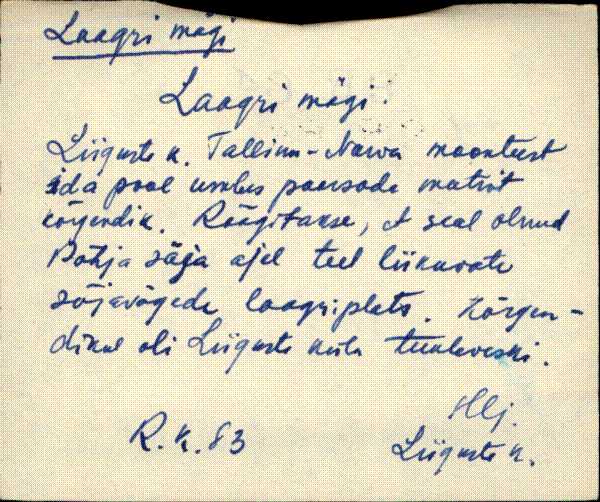 Laagri mägi
Laagri mägi.
Liiguste k. Tallinn-Narva maanteest
ida pool umbes paarsada meetrit
kõrgendik. Räägitakse, et seal olnud
Põhja sõja ajal teel liikuvate
sõjavägede laagriplats. Kõrgen-
dikul oli Liiguste küla tuuleveski.
Hlj.
R.K. 83
Liiguste k.